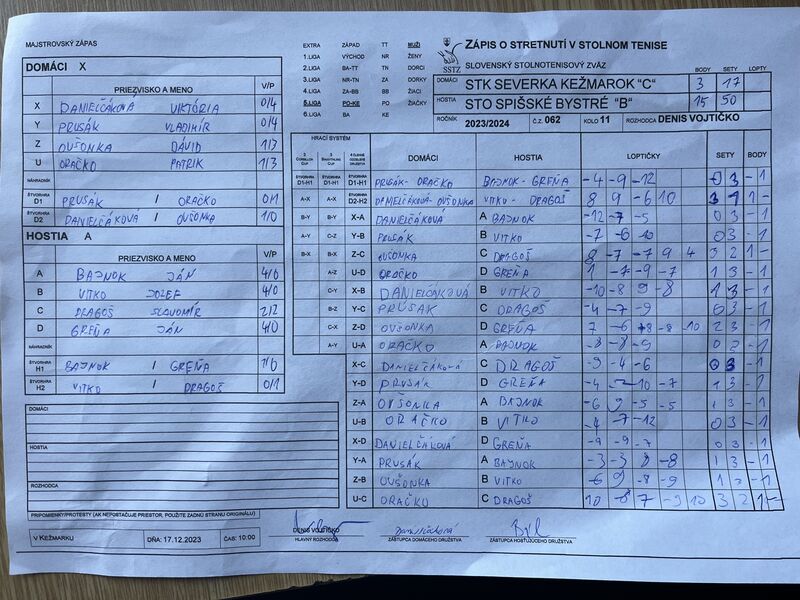 MAJSTROVSKÝ ZÁPAS
DOMÁCI X
PRIEZVISKO A MENO V/P
X DANIELČÁKOVÁ VIKTÓRIA 0/4
Y PRUSÁK VLADIMÍR 0/4
Z OVŠONKA DÁVID 1/3
U ORAČKO PATRIK 1/3
NÁHRADNÍK
ŠTVORHRA D1 PRUSÁK / ORAČKO 0/1
ŠTVORHRA D2 DANIELČÁKOVÁ / OVŠONKA 1/0
HOSTIA A
PRIEZVISKO A MENO V/P
A BAJNOK JÁN 4/0
B VITKO JOZEF 4/0
C DRAGOŠ SLAVOMÍR 2/2
D GREŇA JÁN 4/0
ŠTVORHRA H1 BAJNOK / GREŇA 1/0
ŠTVORHRA H2 VITKO / DRAGOŠ 0/1
DOMÁCI
HOSTIA
ROZHODCA
PRIPOMIENKY/PROTESTY (AK NEPOSTAČUJE PRIESTOR, POUŽITE ZADNÚ STRANU ORIGINÁLU)
V KEŽMARKU DŇA: 17.12.2023 ČAS: 10:00
EXTRA ZÁPAD TT MUŽI
1.LIGA VÝCHOD NR ŽENY
2.LIGA BA-TT TN DORCI
3.LIGA NR-TN ZA DORKY
4.LIGA ZA-BB BB ŽIACI
5.LIGA PO-KE PO ŽIAČKY
6.LIGA BA KE
SSTZ
ZÁPIS O STRETNUTÍ V STOLNOM TENISE
SLOVENSKÝ STOLNOTENISOVÝ ZVÄZ
BODY SETY LOPTY
DOMÁCI STK SEVERKA KEŽMAROK "C" 3 17
HOSTIA STO SPIŠSKÉ BYSTRÉ "B" 15 50
ROČNÍK 2023/2024 Č.Z. 062 KOLO 11 ROZHODCA DENIS VOJTIČKO
HRACÍ SYSTÉM
DOMÁCI HOSTIA LOPTIČKY SETY BODY
ŠTVORHRA D1-H1 ŠTVORHRA D1-H1 ŠTVORHRA D1-H1 PRUSÁK-ORAČKO BAJNOK-GREŇA -4 -9 -12 0 3 -1
A-X A-X ŠTVORHRA D2-H2 DANIELČÁKOVÁ-OVŠONKA VITKO-DRAGOŠ 8 9 -6 10 3 1 1-
B-Y B-Y X-A DANIELČÁKOVÁ A BAJNOK -12 -7 -5 0 3 -1
A-Y C-Z Y-B PRUSÁK B VITKO 0 3 -1
B-X B-X Z-C OVŠONKA C DRAGOŠ 8 -7 -7 9 4 3 2 1-
A-Z U-D ORAČKO D GREŇA 1 -7 -9 -7 1 3 -1
C-Y X-B DANIELČÁKOVÁ B VITKO -10 -8 9 -8 1 3 -1
B-Z Y-C PRÚSÁK C DRAGOŠ -4 -7 -9 0 3 -1
C-X Z-D OVŠONKA D GREŇA 7 -6 -8 -10 2 3 -1
A-Y U-A ORAČKO A BAJNOK -8 -8 -9 -1
X-C DANIELČÁKOVÁ C DRAGOŠ -9 -4 -6 0 3 -1
Y-D PRUSÁK D GREŇA -4 -10 -7 1 3 -1
Z-A OVŠONKA A BAJNOK -6 9 -5 -5 1 3 -1
U-B ORAČKO B VITKO -4 -7 -12 0 3 -1
X-D DANIELČÁKOVÁ D GREŇA -9 -9 -7 0 3 -1
Y-A PRUSÁK A BAJNOK -3 -3 8 -8 1 3 -1
Z-B OVŠONKA B VITKO -6 9 -8 -9 1 3 -1
U-C ORAČKO C DRAGOŠ 10 -8 7 -9 10 3 2 1-
DENIS VOJTIČKO
HLAVNÝ ROZHODCA
Danielčáková
ZÁSTUPCA DOMÁCEHO DRUŽSTVA
ZÁSTUPCA HOSŤUJÚCEHO DRUŽSTVA